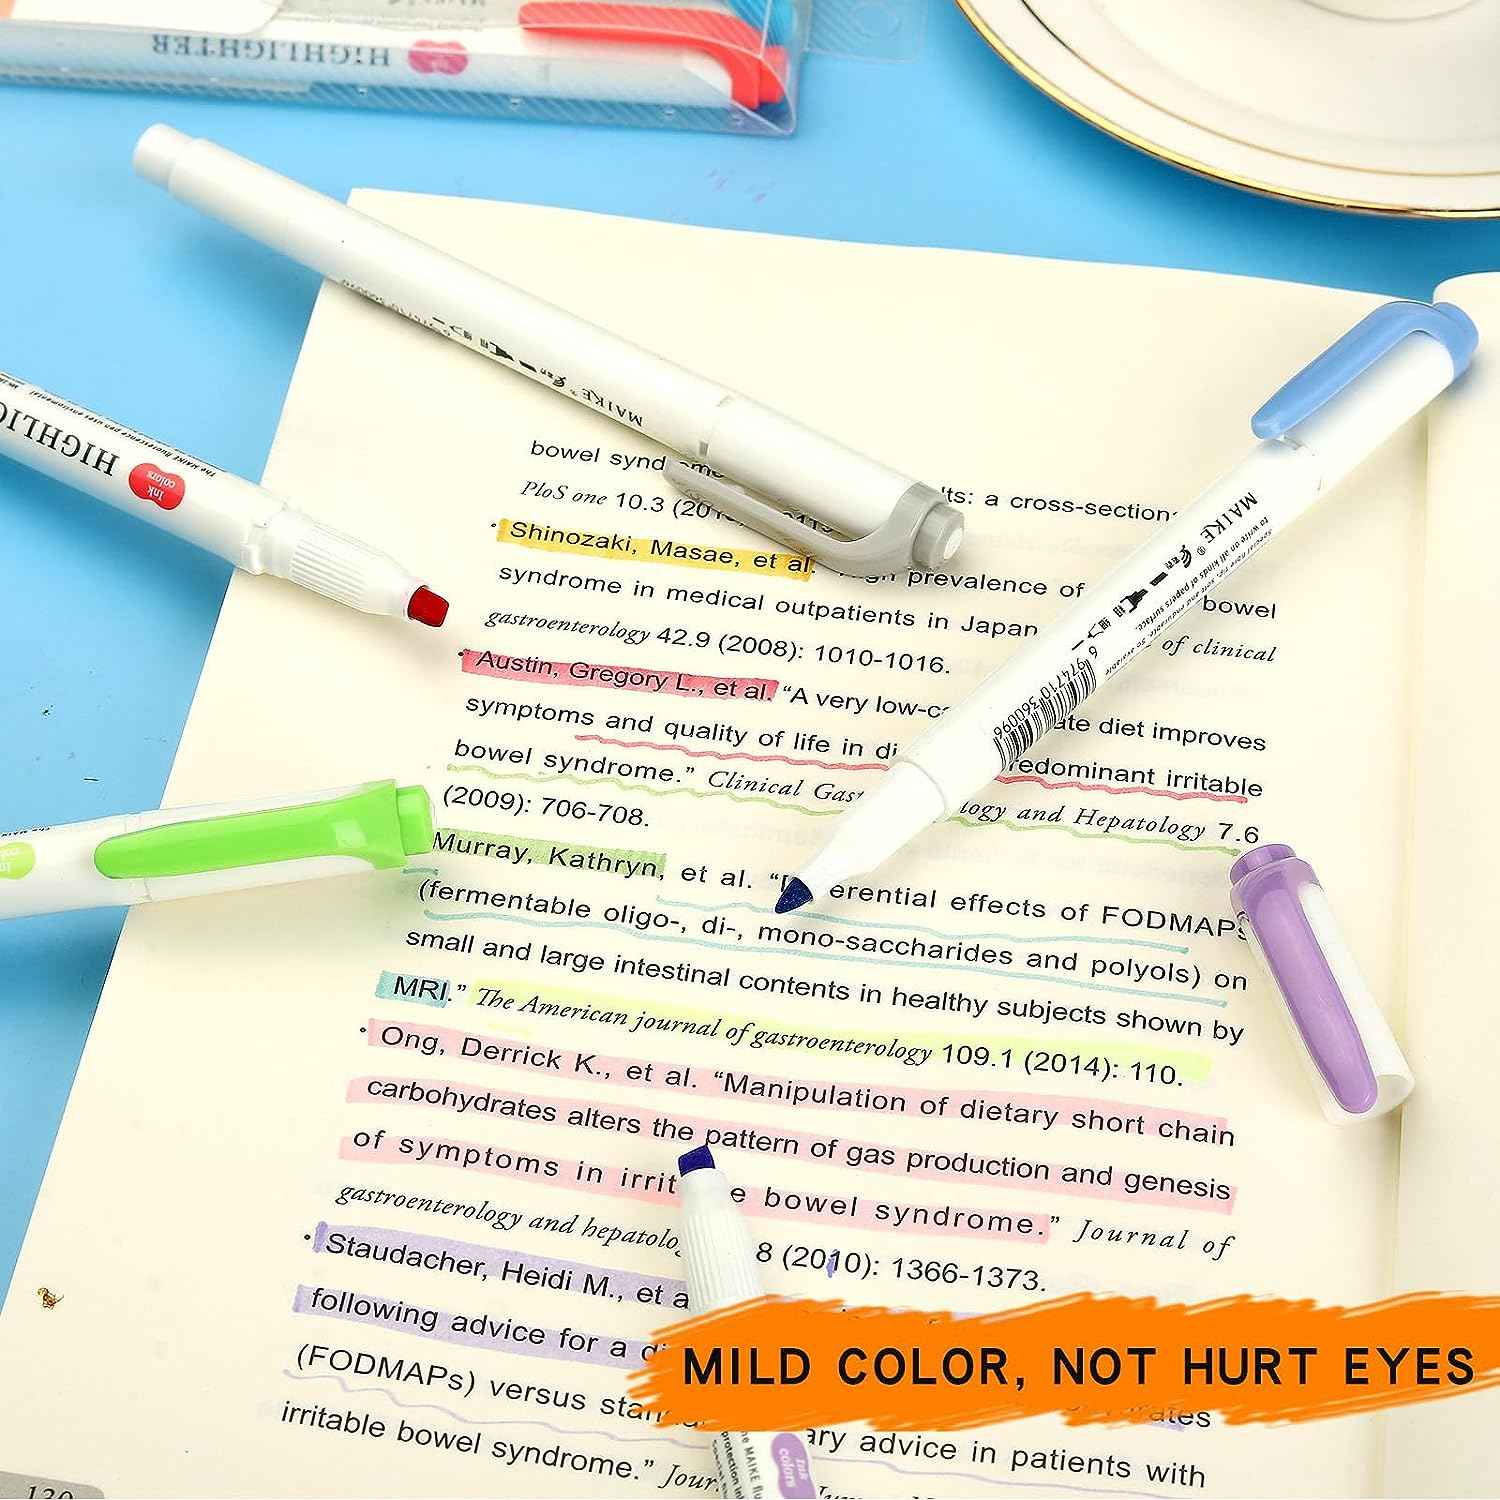 HiGHLIGHTER
MAIKE
HiGHLIG
Ink
colors
The MAIKE fluorescence pen uses environmental
MAIKE®
Special fibre tip, soft and endurable, so available
to write on all kinds of papers surface.
6 974710 360096
bowel synd lts: a cross-section
PloS one 10.3 (201
• Shinozaki, Masae, et al. prevalence of
bowel
syndrome in medical outpatients in Japan of clinical
gastroenterology 42.9 (2008): 1010-1016.
• Austin, Gregory L., et al. “A very low-ca ate diet improves
symptoms and quality of life in di redominant irritable
bowel syndrome.” Clinical Gast logy and Hepatology 7.6
(2009): 706-708.
Murray, Kathryn, et al. “D erential effects of FODMAPs
(fermentable oligo-, di-, mono-saccharides and polyols) on
small and large intestinal contents in healthy subjects shown by
MRI.” The American journal of gastroenterology 109.1 (2014): 110.
• Ong, Derrick K., et al. “Manipulation of dietary short chain
carbohydrates alters the pattern of gas production and genesis
of symptoms in irrit e bowel syndrome.” Journal of
gastroenterology and hepatolo 8 (2010): 1366-1373.
• Staudacher, Heidi M., et a
following advice for a d
(FODMAPs) versus stan rates
irritable bowel syndrome.” Jour ary advice in patients with
MILD COLOR, NOT HURT EYES
Ink
colors
130